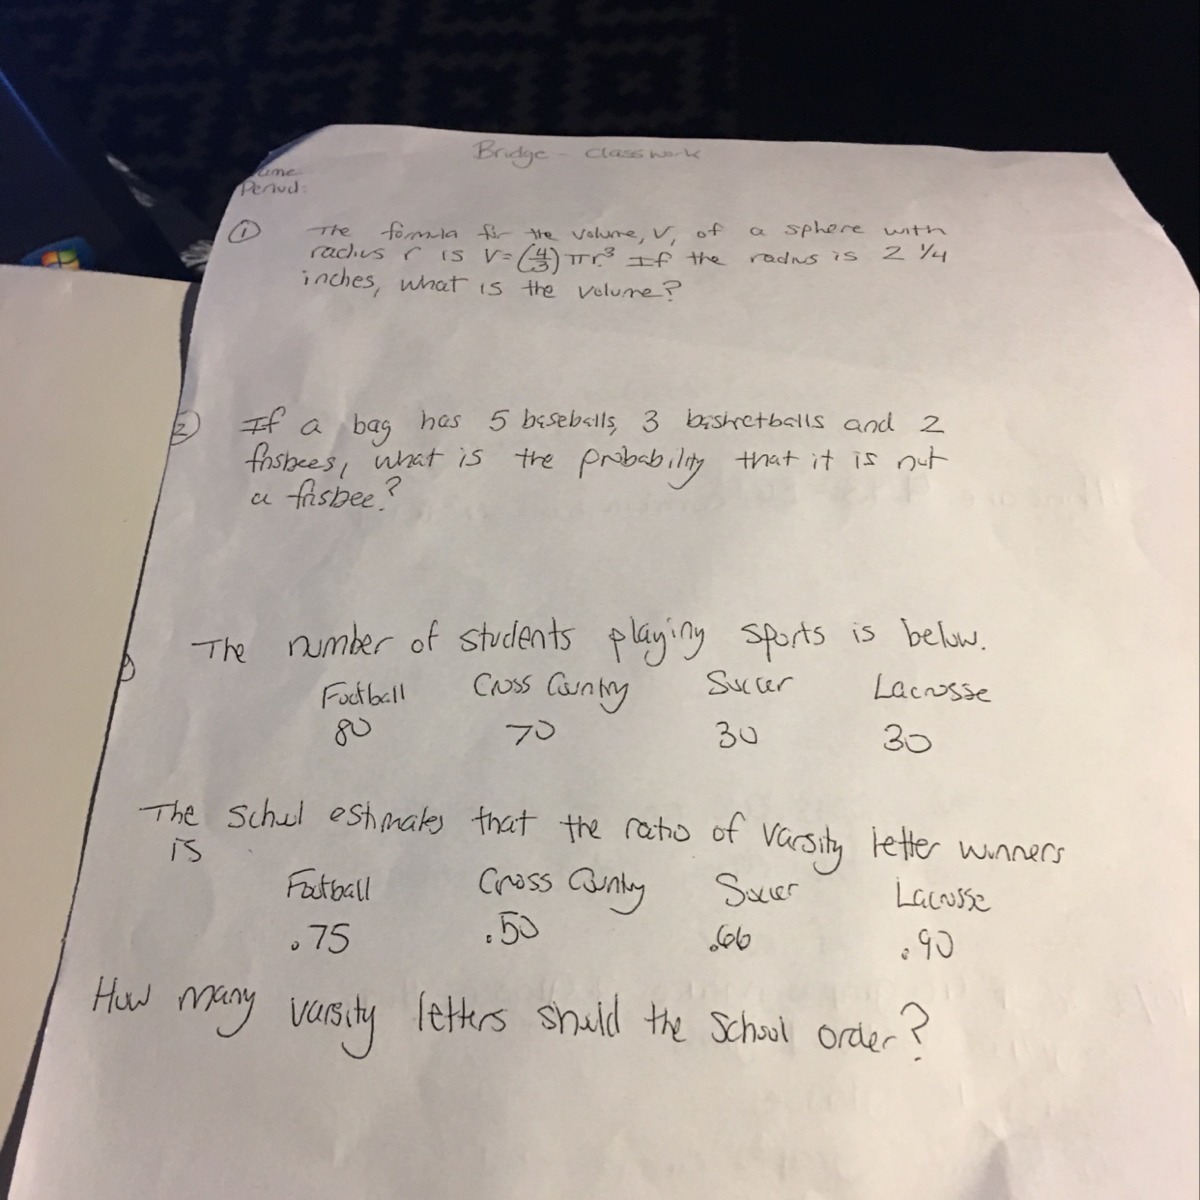 Bridge - Classwork
Period:
① The formula for the volume, V, of a sphere with
radius r is V=(4/3)πr³ If the radius is 2 1/4
inches, what is the volume?
② If a bag has 5 baseballs, 3 basketballs and 2
frisbees, what is the probability that it is not
a frisbee?
The number of students playing sports is below.
Football Cross Country Soccer Lacrosse
80 70 30 30
The school estimates that the ratio of varsity letter winners
is
Football Cross Country Soccer Lacrosse
.75 .50 .66 .90
How many varsity letters should the school order?